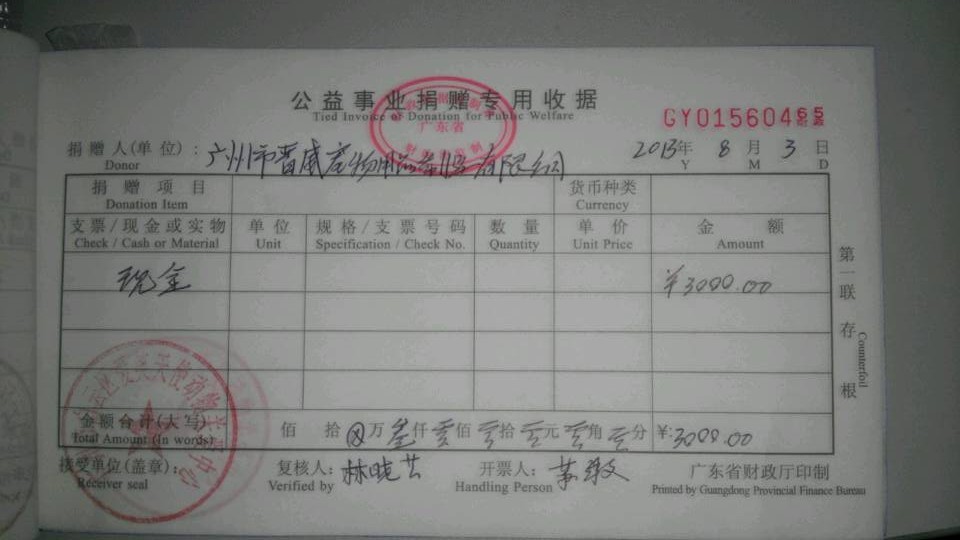 公益事业捐赠专用收据
Tied Invoice of Donation for Public Welfare
广东省
GY01560465
捐赠人(单位):广州市晋威宠物用品有限公司 2013年 8月 3日
Donor Y M D
捐赠项目 货币种类
Donation Item Currency
支票/现金或实物 单位 规格/支票号码 数量 单价 金额
Check / Cash or Material Unit Specification / Check No. Quantity Unit Price Amount
现金 ¥3000.00
第一联存根
Counterfoil
金额合计(大写) 佰 拾 万 叁仟 零佰 零拾 零元 零角 零分 ¥:3000.00
Total Amount (In words)
接受单位(盖章): 复核人:林晓 开票人: 广东省财政厅印制
Receiver seal Verified by Handling Person Printed by Guangdong Provincial Finance Bureau